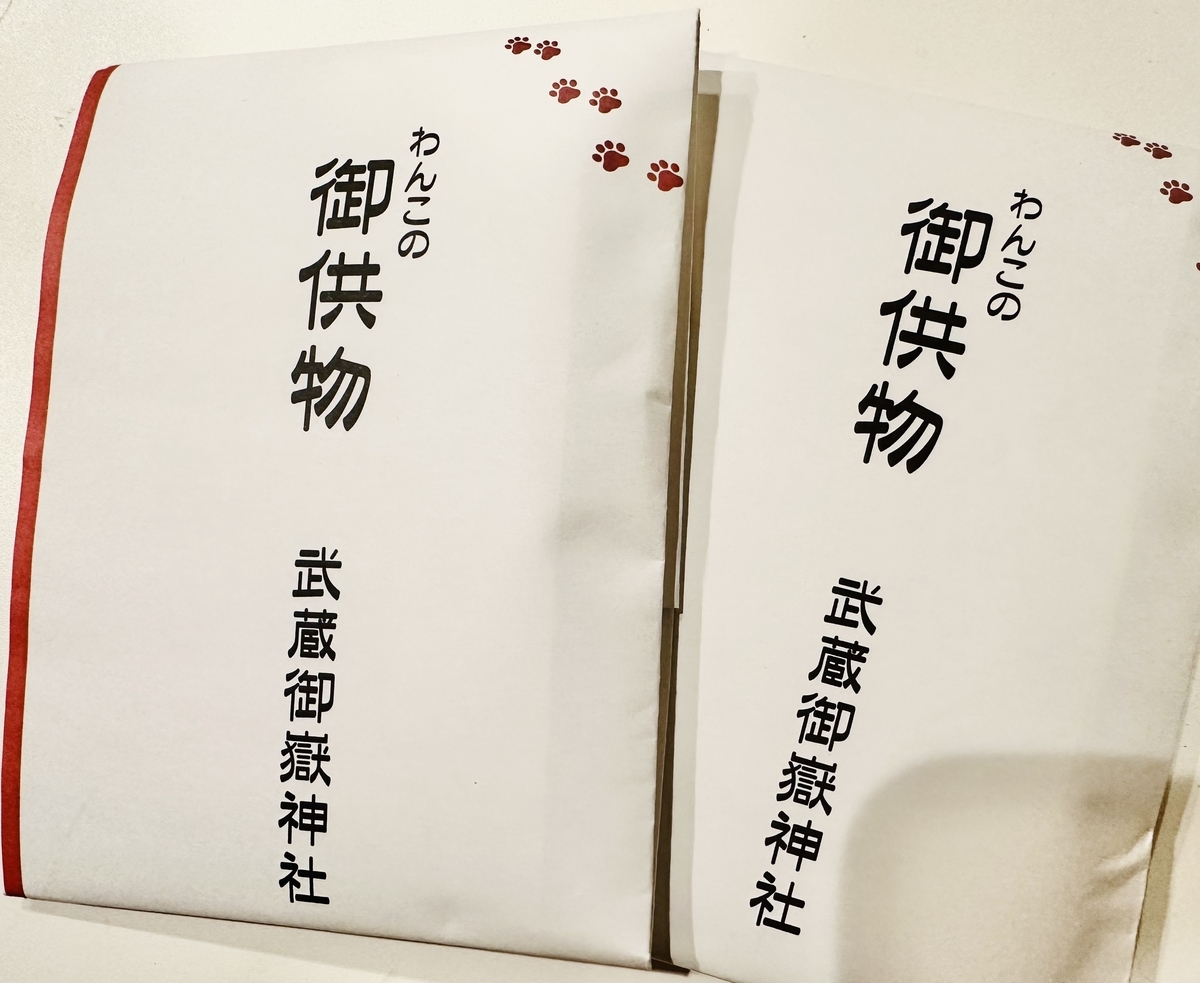 わんこの
御供物
武蔵御嶽神社
わんこの
御供物
武蔵御嶽神社